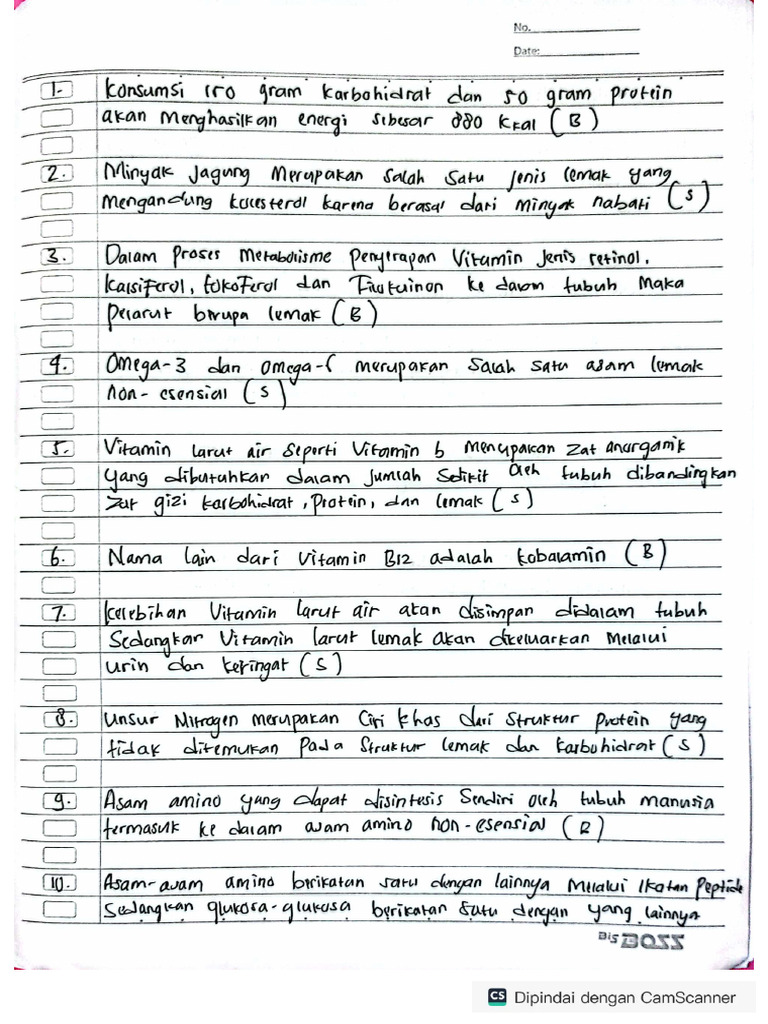 No.
Date:
1. Konsumsi 150 gram karbohidrat dan 50 gram protein
akan menghasilkan energi sebesar 880 kkal (B)
2. Minyak Jagung Merupakan Salah Satu Jenis lemak yang
Mengandung kolesterol karena berasal dari minyak nabati (S)
3. Dalam Proses Metabolisme Penyerapan Vitamin Jenis retinol,
kalsiferol, tokoferol dan ke dalam tubuh Maka
Pelarut berupa lemak (B)
4. Omega-3 dan Omega-6 merupakan Salah satu asam lemak
non-esensial (S)
5. Vitamin larut air seperti Vitamin b merupakan zat anorganik
yang dibutuhkan dalam jumlah Sedikit oleh tubuh dibandingkan
zat gizi karbohidrat, protein, dan lemak (S)
6. Nama lain dari Vitamin B12 adalah kobalamin (B)
7. kelebihan Vitamin larut air akan disimpan didalam tubuh
Sedangkan Vitamin larut lemak akan dikeluarkan Melalui
urin dan keringat (S)
8. Unsur Nitrogen merupakan Ciri khas dari Struktur Protein yang
tidak ditemukan Pada Struktur lemak dan karbohidrat (S)
9. Asam amino yang dapat disintesis Sendiri oleh tubuh manusia
termasuk ke dalam asam amino non-esensial (B)
10. Asam-asam amino berikatan satu dengan lainnya Melalui Ikatan Peptide
Sedangkan glukosa-glukosa berikatan Satu dengan yang lainnya
Big BOSS
CS Dipindai dengan CamScanner